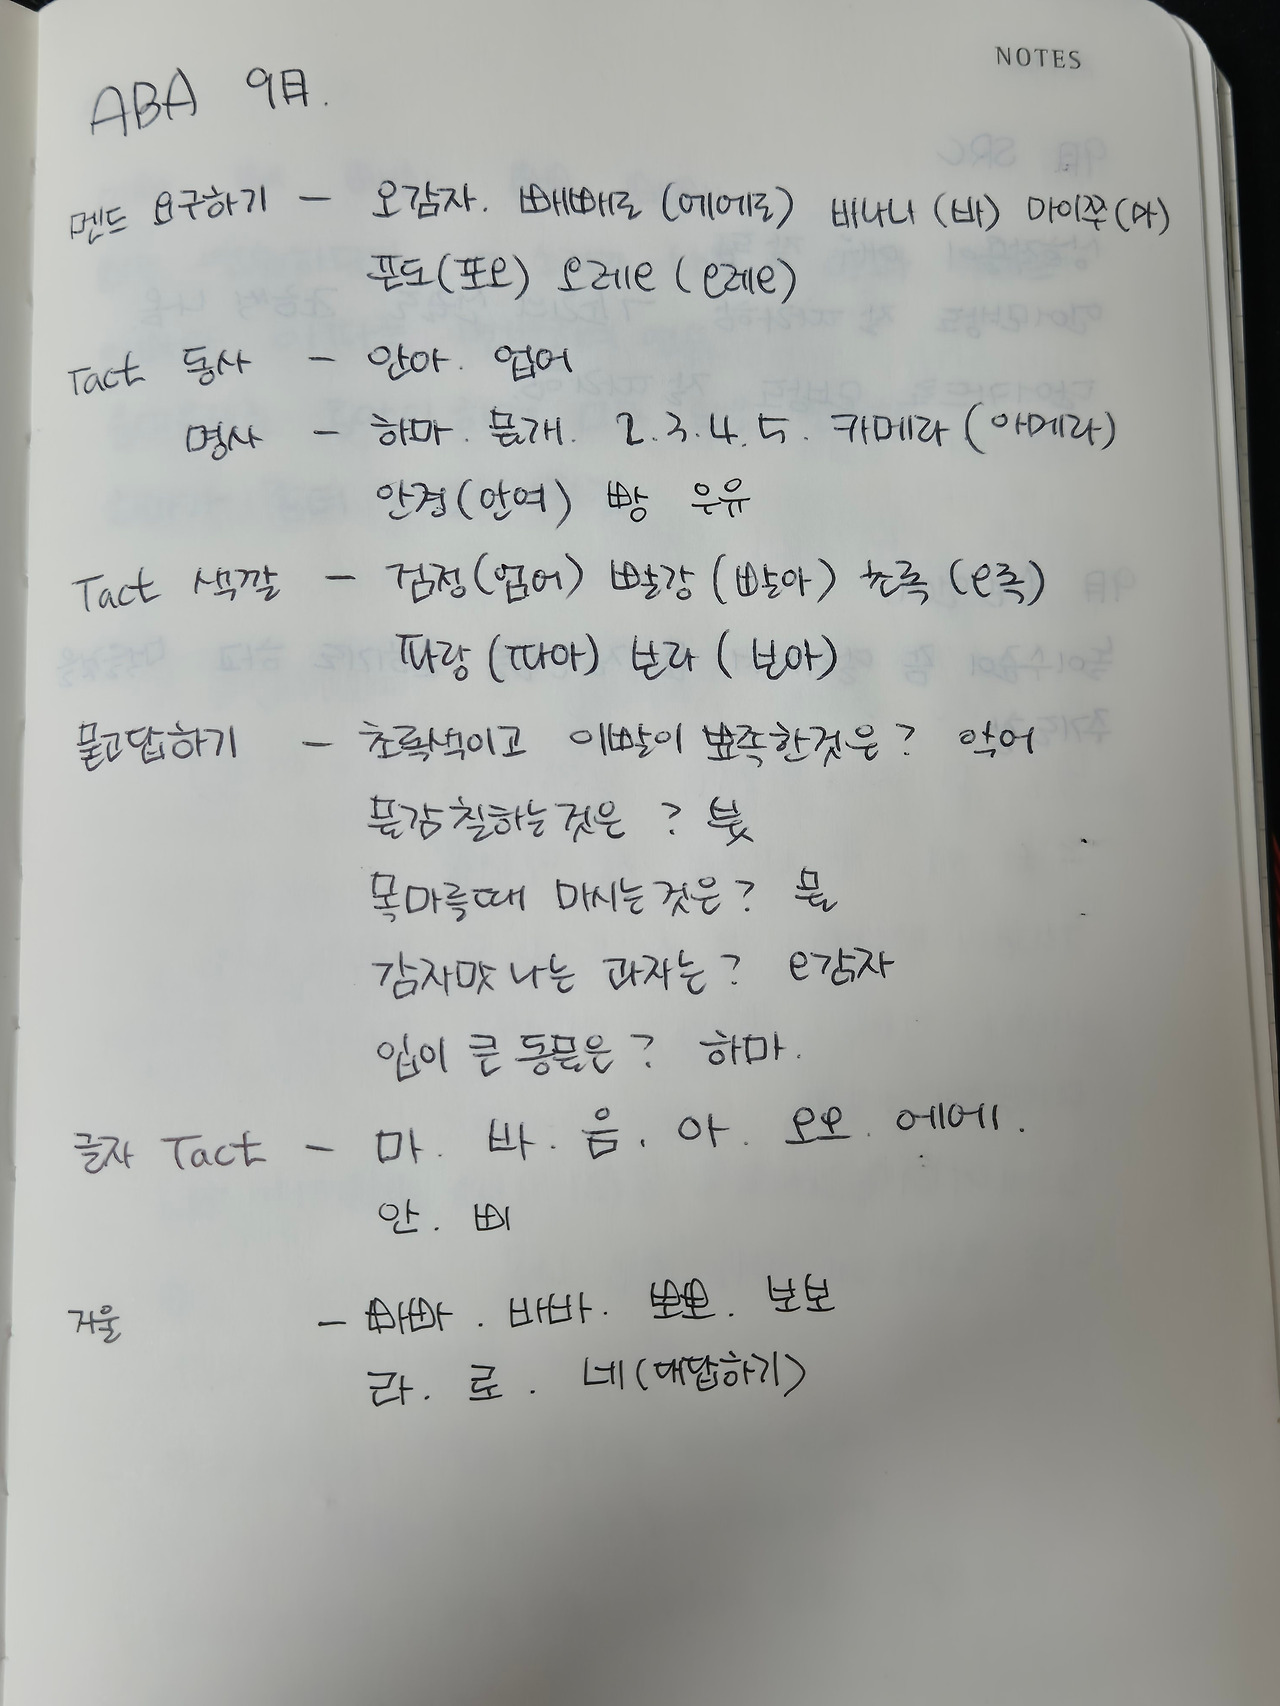 NOTES
ABA 9月.
멘드 요구하기 - 오감자. 빼빼로 (에에로) 바나나 (바) 마이쭈 (마)
포도 (포오) 오레오 (오레오)
Tact 동사 - 안아. 업어
명사 - 하마. 물개. 2. 3. 4. 5. 카메라 (아메라)
안경 (안여) 빵 우유
Tact 색깔 - 검정 (엄어) 빨강 (빨아) 초록 (오록)
파랑 (따아) 보라 (보아)
묻고답하기 - 초록색이고 이빨이 뾰족한것은? 악어
물감 칠하는 것은? 붓
목마를때 마시는것은? 물
감자맛 나는 과자는? 오감자
입이 큰 동물은? 하마.
글자 Tact - 마. 바. 음. 아. 오오. 에에.
안. 삐
거울 - 빠빠. 바바. 뽀뽀. 보보
라. 로. 네 (대답하기)